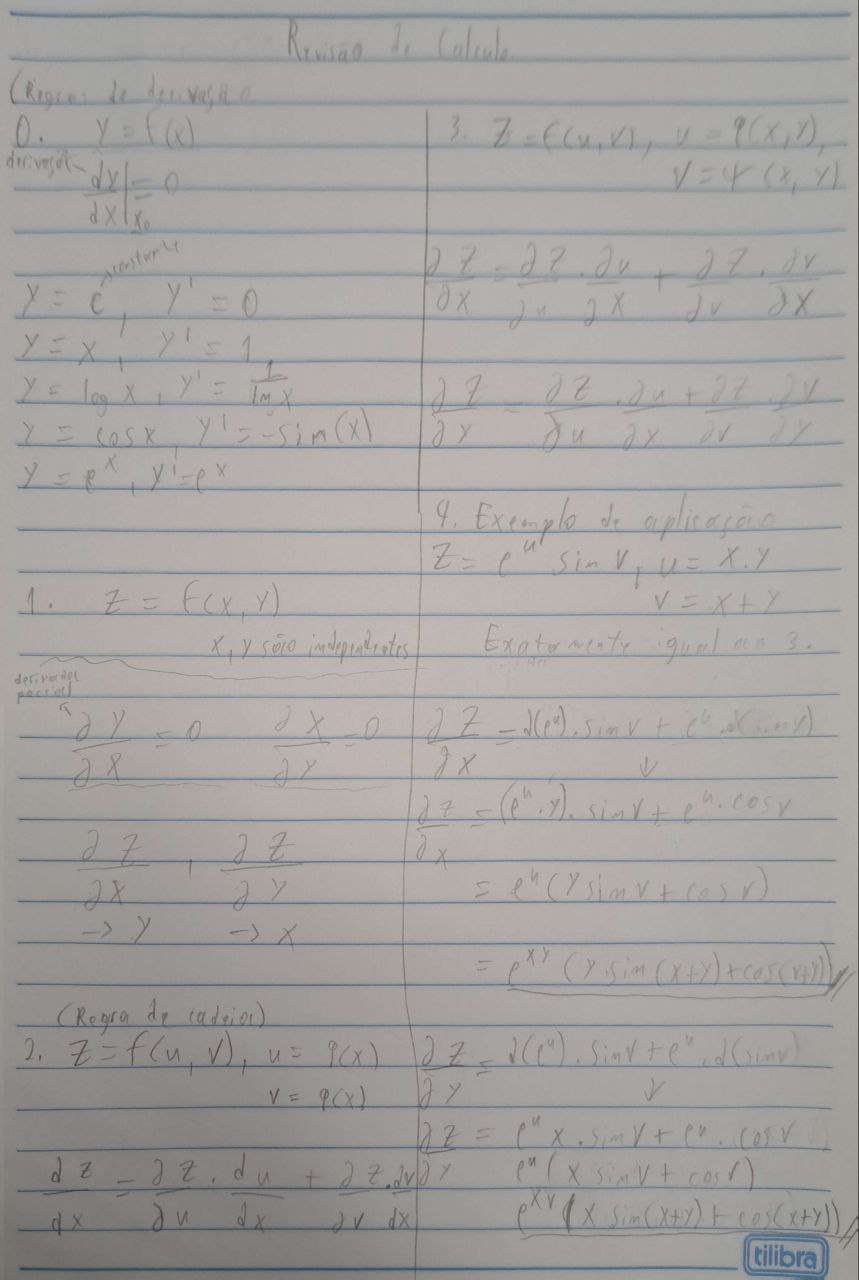 Revisão de Calculo
(Regras de derivação
0. y = f(x)
derivação
dy/dx|x₀ = 0
constante
y = c, y' = 0
y = x, y' = 1
y = log x, y' = 1/ln x
y = cosx, y' = -sin(x)
y = e^x, y' = e^x
1. z = f(x, y)
x, y são independentes
derivada
parcial
∂y/∂x = 0 ∂x/∂y = 0
∂z/∂x , ∂z/∂y
-> y -> x
(Regra de cadeia)
2. z = f(u, v), u = φ(x)
v = φ(x)
dz/dx = ∂z/∂u · du/dx + ∂z/∂v · dv/dx
3. z = f(u, v), u = φ(x, y),
v = ψ(x, y)
∂z/∂x = ∂z/∂u · ∂u/∂x + ∂z/∂v · ∂v/∂x
∂z/∂y = ∂z/∂u · ∂u/∂y + ∂z/∂v · ∂v/∂y
4. Exemplo de aplicação
z = e^u sin v, u = x.y
v = x + y
Exatamente igual ao 3.
∂z/∂x = d(e^u). sinv + e^u . d(sinv)
↓
∂z/∂x = (e^u.y). sinv + e^u. cosv
= e^u (y sinv + cosv)
= e^xy (y.sin(x+y) + cos(x+y))//
∂z/∂y = d(e^u). sinv + e^u. d(sinv)
↓
∂z/∂y = e^u x . sinv + e^u . cosv
e^u (x sinv + cosv)
e^xy (x sin(x+y) + cos(x+y))//
tilibra